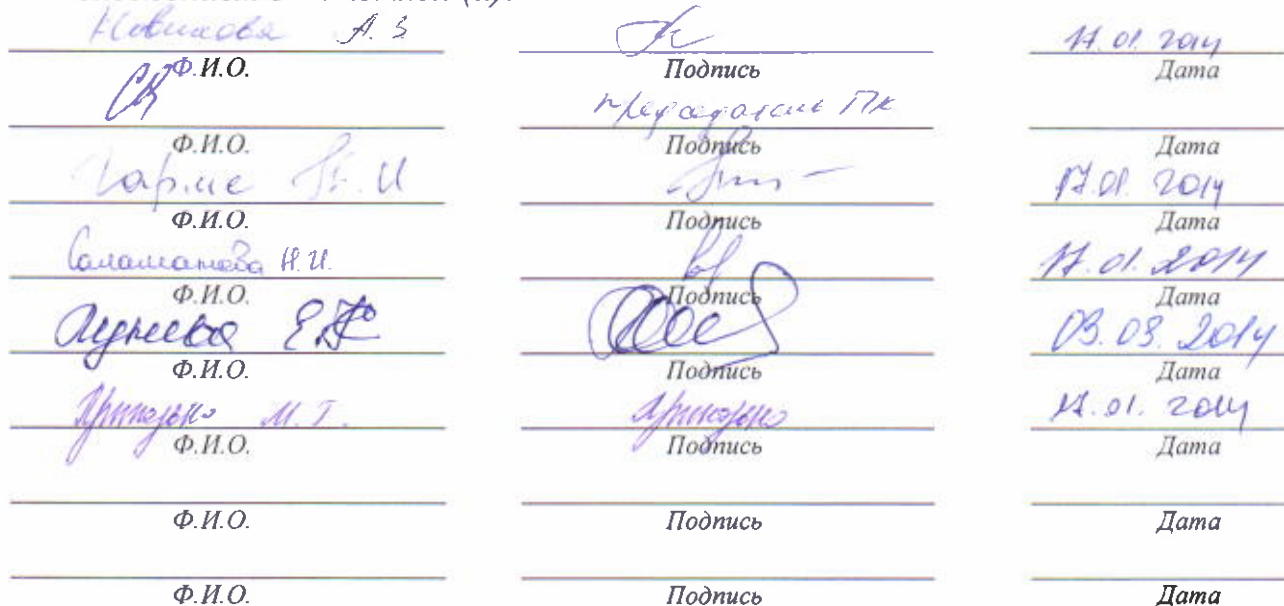 Новикова А. З 17.01.2014
Ф.И.О. Подпись Дата
председатель ПК
Ф.И.О. Подпись Дата
17.01.2014
Ф.И.О. Подпись Дата
Саламатова Н.И. 17.01.2014
Ф.И.О. Подпись Дата
03.03.2014
Ф.И.О. Подпись Дата
М. Т. 17.01.2014
Ф.И.О. Подпись Дата
Ф.И.О. Подпись Дата
Ф.И.О. Подпись Дата